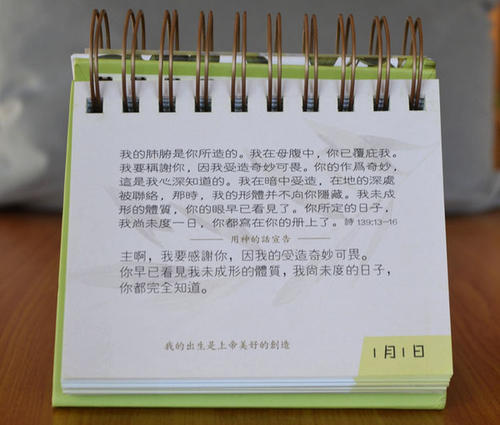 我的肺腑是你所造的。我在母腹中，你已覆庇我。
我要稱謝你，因我受造奇妙可畏。你的作爲奇妙，
這是我心深知道的。我在暗中受造，在地的深處
被聯絡，那時，我的形體並不向你隱藏。我未成
形的體質，你的眼早已看見了。你所定的日子，
我尚未度一日，你都寫在你的册上了。詩 139:13-16
用神的話宣告
主啊，我要感謝你，因我的受造奇妙可畏。
你早已看見我未成形的體質，我尚未度的日子，
你都完全知道。
我的出生是上帝美好的創造
1月1日